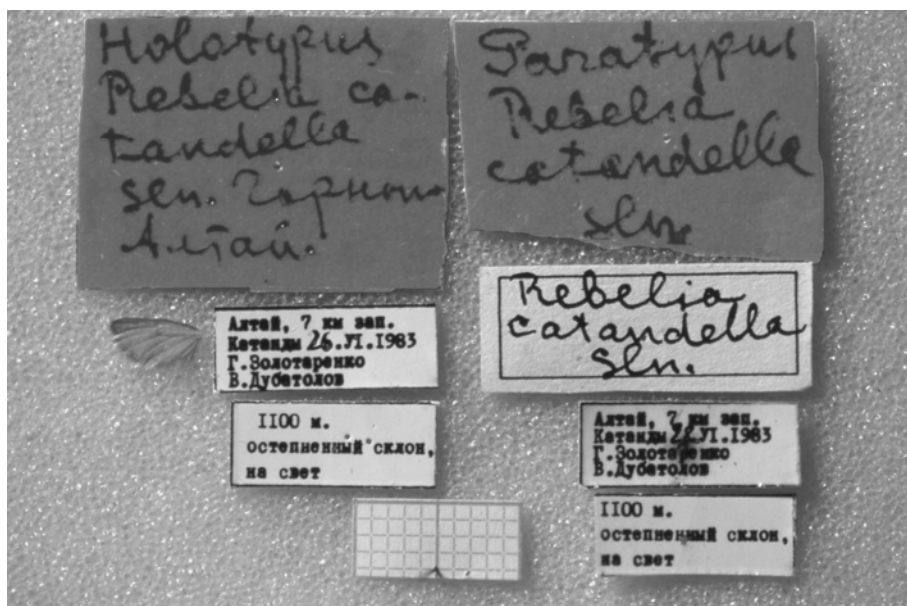 Holotypus
Rebelia ca-
tandella
Sln. Горный
Алтай.
Paratypus
Rebelia
catandella
Sln.
Rebelia
catandella
Sln.
Алтай, 7 км зап.
Катанды 26.VI.1983
Г.Золотаренко
В.Дубатолов
1100 м.
остепненный склон,
на свет
Алтай, 7 км зап.
Катанды .VI.1983
Г.Золотаренко
В.Дубатолов
1100 м.
остепненный склон,
на свет